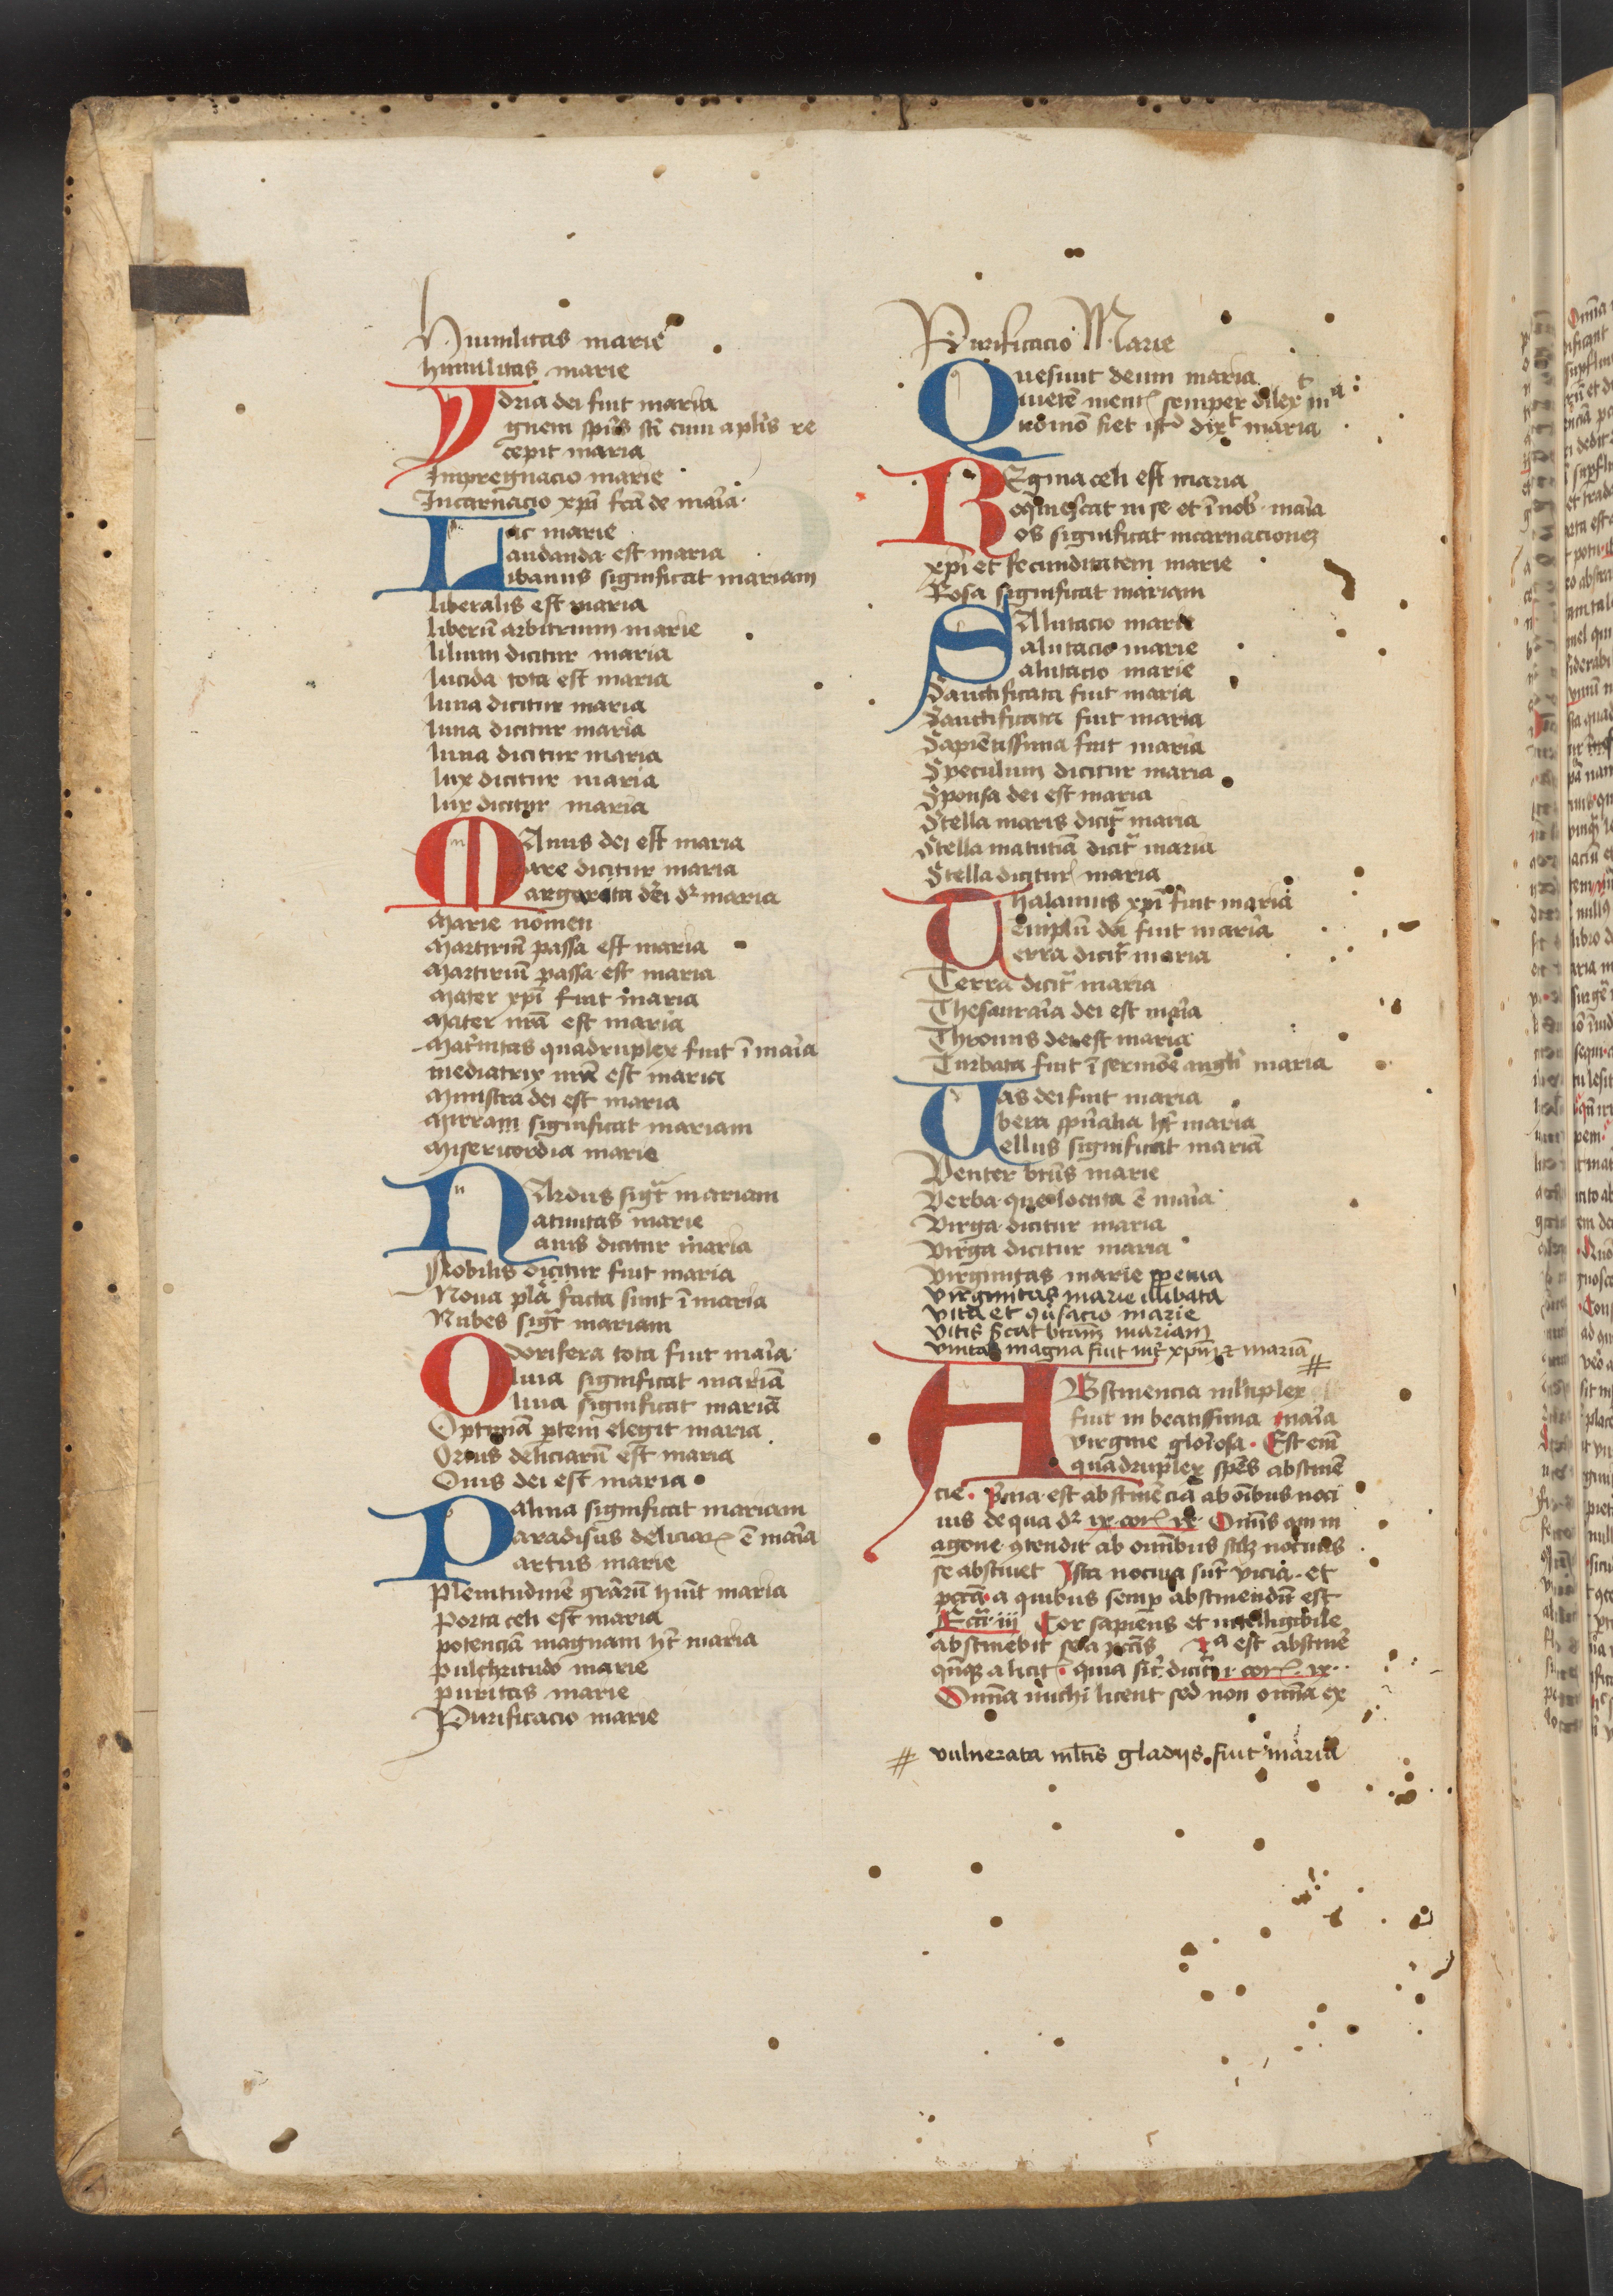 Humilitas marie
humilitas marie
Ydria dei fuit maria
ygnem sp̄us sc̄i cum aplīs re
cepit maria
Impregnacio marie
Incarnacio xp̄i fc̄a de mar̄ia
Lac marie
laudanda est maria
libanus significat mariam
liberalis est maria
liberū arbitrium marie
lilium dicitur maria
lucida tota est maria
luna dicitur maria
luna dicitur maria
luna dicitur maria
lux dicitur maria
lux dicitur maria
MAnus dei est maria
mare dicitur maria
margarita dei dr̄ maria
Marie nomen
Martiriū passa est maria
Martiriū passa est maria
Mater xp̄i fuit maria
Mater nr̄a est maria
Mat̄nitas quadruplex fuit ī mar̄ia
mediatrix nr̄a est maria
Ministra dei est maria
Mirram significat mariam
Misericordia marie
NArdus sigt̄ mariam
natiuitas marie
nauis dicitur maria
Nobilis dicitur fuit maria
Noua pl̄a facta sunt ī maria
Nubes sigt̄ mariam
Odorifera tota fuit mar̄ia
Oliua significat mariā
Oliua significat mariā
Optimā ptem elegit maria
Ortus deliciarū est maria
Ouis dei est maria
Palma significat mariam
Paradisus deliciaꝝ ē mar̄ia
Partus marie
Plenitudinē grārum hūit maria
Porta celi est maria
potenciā magnam ht̄ maria
pulchritudo marie
puritas marie
Purificacio marie
Purificacio Marie
Quesiuit deum maria
Quietē mentꝭ semper dilexᵗ mᵃ
Quomō fiet istᵈ dixᵗ maria
REgina celi est maria
Reqͥescat in se et ī nob̄ mar̄ia
Ros significat incarnacioneꝫ
xp̄i et fecunditatem marie
Rosa significat mariam
SAlutacio marie
Salutacio marie
Salutacio marie
Sanctificata fuit maria
Sanctificata fuit maria
Sapiētissima fuit maria
Speculum dicitur maria
Sponsa dei est maria
Stella maris dicit̄ maria
Stella matutīa dicit̄ maria
Stella dicitur maria
Thalamus xp̄i fuit maria
Templū dei fuit maria
Terra dicit̄ maria
Terra dicit̄ maria
Thesauraīa dei est mar̄ia
Thronus dei est maria
Turbata fuit ī sermōe angl̄i maria
Uas dei fuit maria
Ubera sp̄ūalia ht̄ maria
Uellus significat mariā
Venter btūs marie
Verba que locuta ē mar̄ia
Virga dicitur maria
Virga dicitur maria
Virginitas marie ꝑpetua
Virginitas marie illibata
Vita et ꝯūsacio marie
Vitis sc̄at btam̄ mariam
Vnitas magna fuit int̄ xpm̄ et mariā #
ABstinencia ml̄tiplex
fuit in beatissima mar̄ia
virgine glōiosa. Est em̄
quadruplex spēs abstinē
cie. pͥma est abstinēcia ab oībus noci
uis de qua dr̄ ix corꝭ ix Omīs qui in
agone ꝯtendit ab omnibus scilꝫ nociuis
se abstinet Ista nociua sūt vicia et
pctā a quibus semꝑ abstinendū est
Eccī iii Cor sapiens et intelligibile
abstinebit se a pctīs IIᵃ est abstinē
qn̄qꝫ a licitꝭ quia sic̄ dicit̄ i corꝭ ix
Omīa michi licent sed non omīa ex
# vulnerata ml̄tis gladijs fuit maria